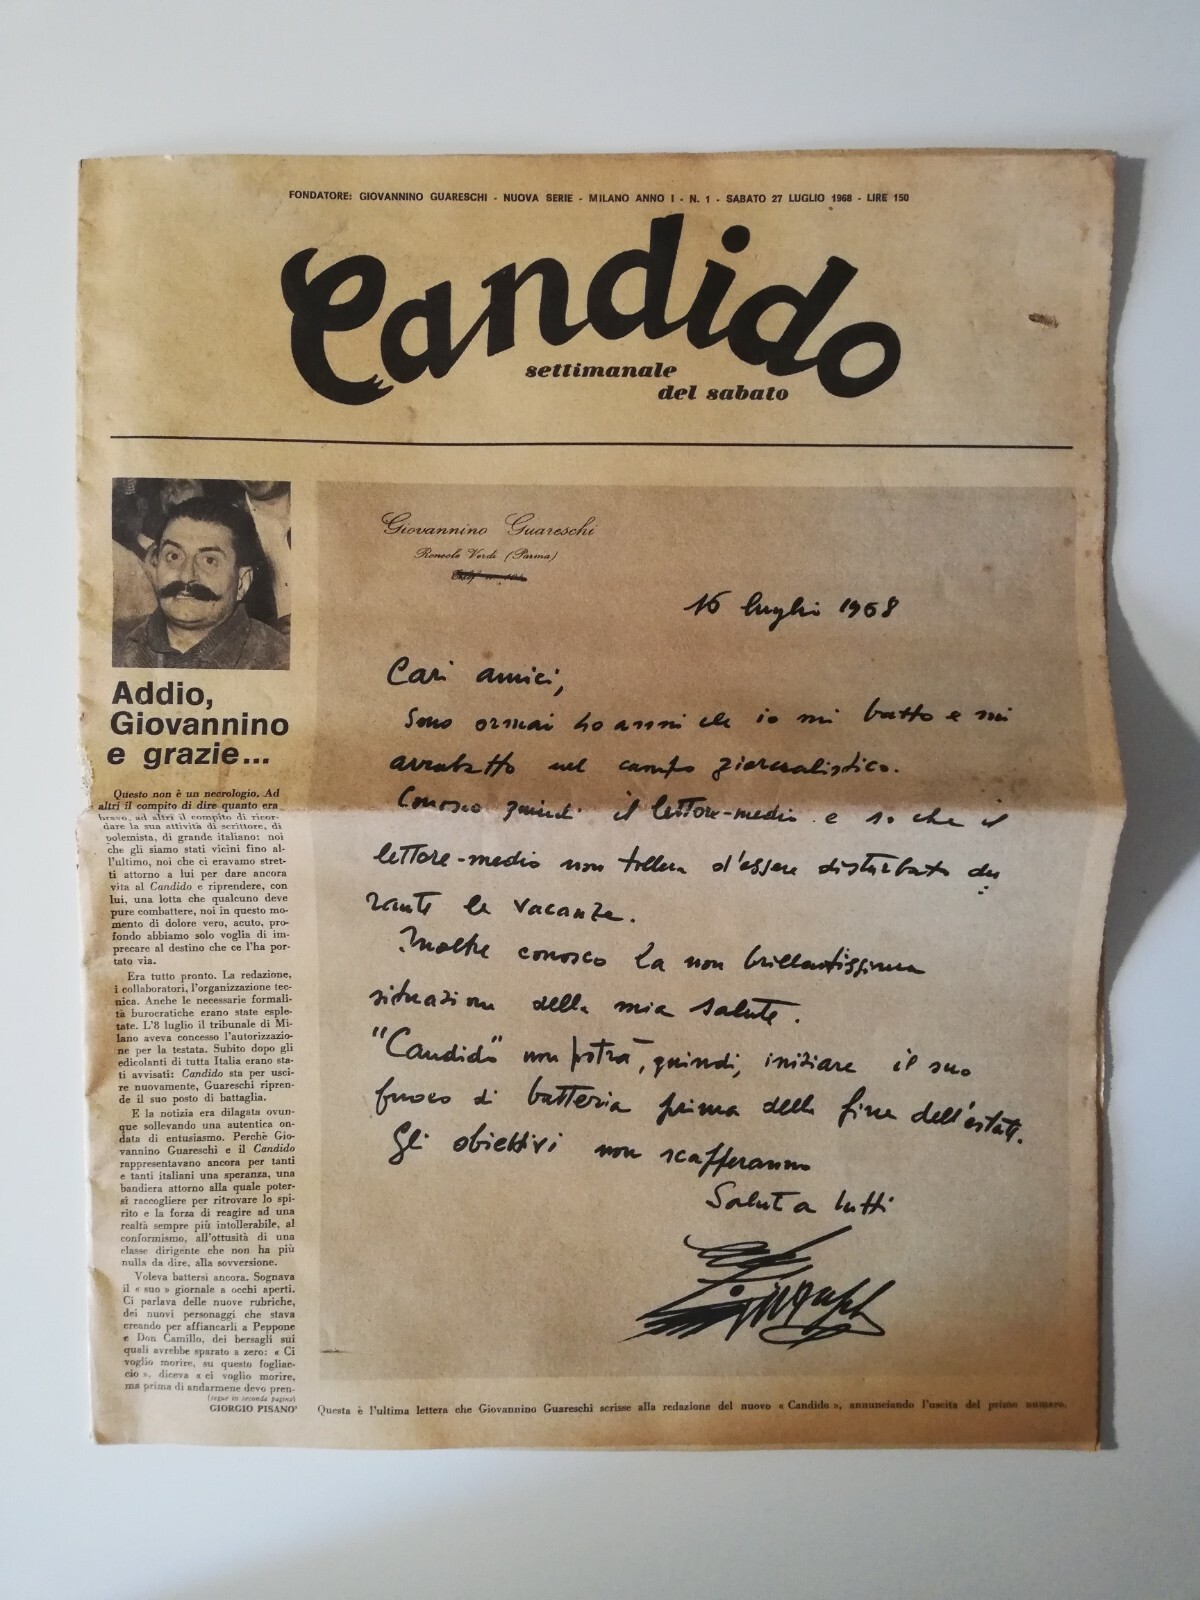 FONDATORE: GIOVANNINO GUARESCHI - NUOVA SERIE - MILANO ANNO I - N. 1 - SABATO 27 LUGLIO 1968 - LIRE 150
Candido
settimanale
del sabato
Addio,
Giovannino
e grazie...
Questo non è un necrologio. Ad
altri il compito di dire quanto era
bravo, ad altri il compito di ricor-
dare la sua attività di scrittore, di
polemista, di grande italiano: noi
che gli siamo stati vicini fino al-
l'ultimo, noi che ci eravamo stret-
ti attorno a lui per dare ancora
vita al Candido e riprendere, con
lui, una lotta che qualcuno deve
pure combattere, noi in questo mo-
mento di dolore vero, acuto, pro-
fondo abbiamo solo voglia di im-
precare al destino che ce l'ha por-
tato via.
Era tutto pronto. La redazione,
i collaboratori, l'organizzazione tec-
nica. Anche le necessarie formali-
tà burocratiche erano state esple-
tate. L'8 luglio il tribunale di Mi-
lano aveva concesso l'autorizzazio-
ne per la testata. Subito dopo gli
edicolanti di tutta Italia erano sta-
ti avvisati: Candido sta per usci-
re nuovamente, Guareschi ripren-
de il suo posto di battaglia.
E la notizia era dilagata ovun-
que sollevando una autentica on-
data di entusiasmo. Perchè Gio-
vannino Guareschi e il Candido
rappresentavano ancora per tanti
e tanti italiani una speranza, una
bandiera attorno alla quale poter-
si raccogliere per ritrovare lo spi-
rito e la forza di reagire ad una
realtà sempre più intollerabile, al
conformismo, all'ottusità di una
classe dirigente che non ha più
nulla da dire, alla sovversione.
Voleva battersi ancora. Sognava
il « suo » giornale a occhi aperti.
Ci parlava delle nuove rubriche,
dei nuovi personaggi che stava
creando per affiancarli a Peppone
e Don Camillo, dei bersagli sui
quali avrebbe sparato a zero: « Ci
voglio morire, su questo fogliac-
cio », diceva « ci voglio morire,
ma prima di andarmene devo pren-
(segue in seconda pagina)
GIORGIO PISANO'
Giovannino Guareschi
Roncole Verdi (Parma)
16 luglio 1968
Cari amici,
sono ormai 40 anni che io mi batto e mi
arrabatto nel campo giornalistico.
Conosco quindi il lettore-medio e so che il
lettore-medio non tollera d'essere disturbato du
rante le vacanze.
Inoltre conosco la non brillantissima
situazione della mia salute.
"Candido" non potrà, quindi, iniziare il suo
fuoco di batteria prima della fine dell'estate.
Gli obiettivi non scapperanno
Saluti a tutti
Questa è l'ultima lettera che Giovannino Guareschi scrisse alla redazione del nuovo « Candido », annunciando l'uscita del primo numero.